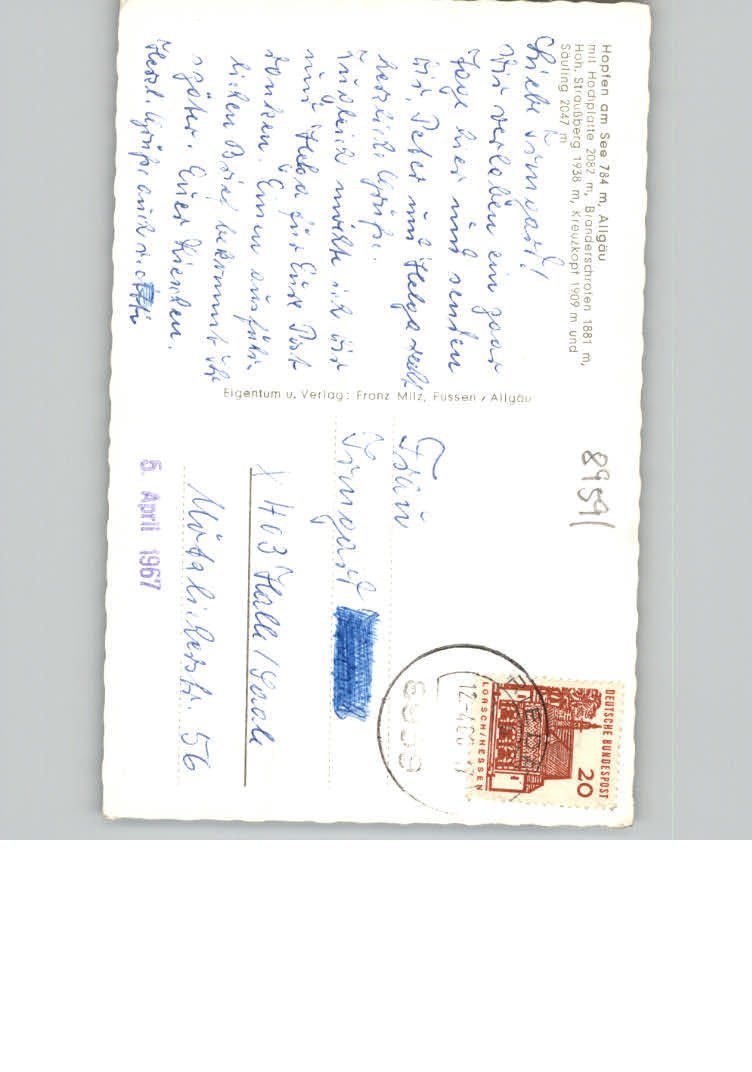 Hopfen am See 784 m, Allgäu
mit Hochplatte 2082 m, Branderschrofen 1881 m,
Hoh. Straußberg 1938 m, Kreuzkopf 1909 m und
Säuling 2047 m
Liebe Irmgard!
Wir verleben ein paar
Tage hier und senden
Dir, Peter und Helga recht
herzliche Grüße.
Zugleich möchte ich Dir
und Helga für Eure Post
danken. Einen ausführ-
lichen Brief bekommt Ihr
später. Euer
Herzl. Grüße auch
Eigentum u. Verlag: Franz Milz, Füssen / Allgäu
8959/
Frau
Irmgard
X 403 Halle / Saale
Mötzlicherstr. 56
5. April 1967
DEUTSCHE BUNDESPOST
20
LORSCH/HESSEN
8959